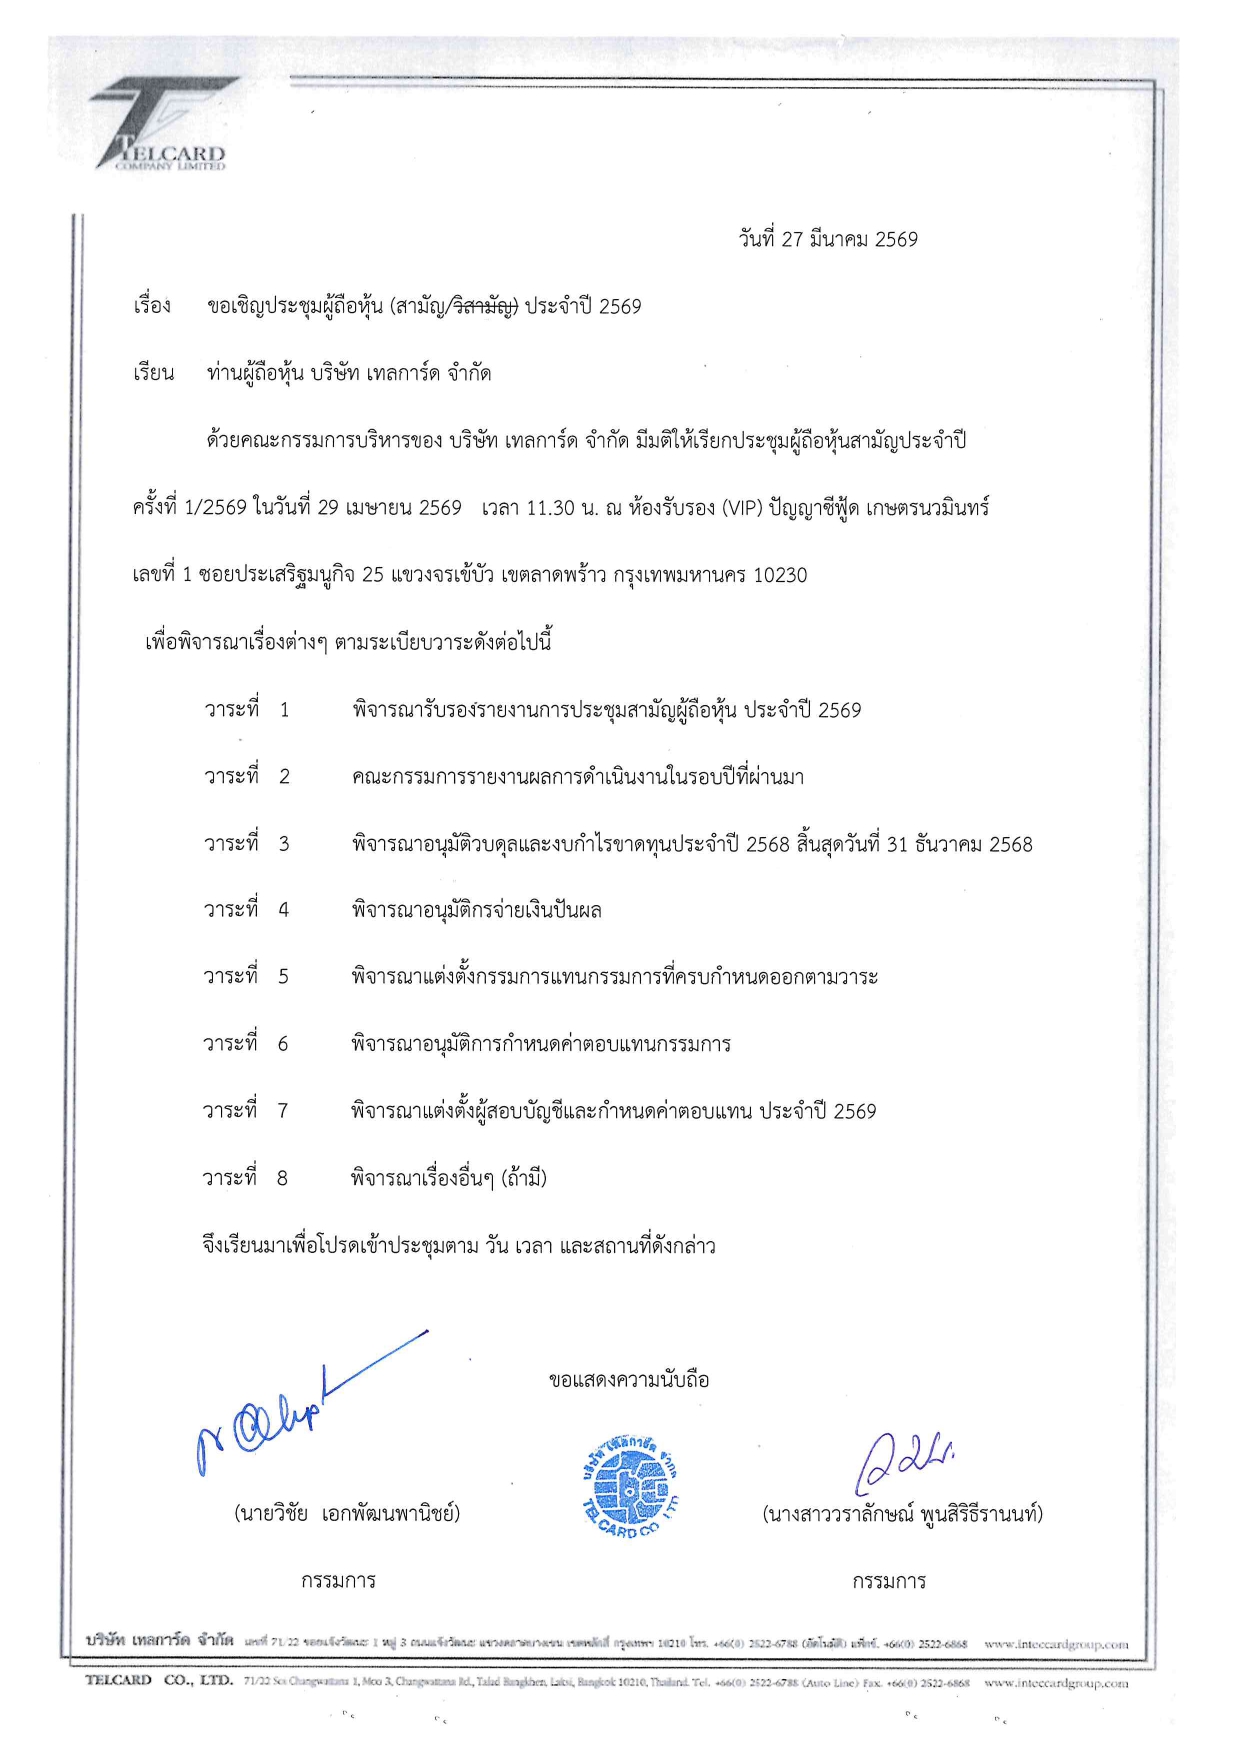 TELCARD
COMPANY LIMITED
วันที่ 27 มีนาคม 2569
เรื่อง ขอเชิญประชุมผู้ถือหุ้น (สามัญ/วิสามัญ) ประจำปี 2569
เรียน ท่านผู้ถือหุ้น บริษัท เทลการ์ด จำกัด
ด้วยคณะกรรมการบริหารของ บริษัท เทลการ์ด จำกัด มีมติให้เรียกประชุมผู้ถือหุ้นสามัญประจำปี
ครั้งที่ 1/2569 ในวันที่ 29 เมษายน 2569 เวลา 11.30 น. ณ ห้องรับรอง (VIP) ปัญญาซีฟู้ด เกษตรนวมินทร์
เลขที่ 1 ซอยประเสริฐมนูกิจ 25 แขวงจรเข้บัว เขตลาดพร้าว กรุงเทพมหานคร 10230
เพื่อพิจารณาเรื่องต่างๆ ตามระเบียบวาระดังต่อไปนี้
วาระที่ 1 พิจารณารับรองรายงานการประชุมสามัญผู้ถือหุ้น ประจำปี 2569
วาระที่ 2 คณะกรรมการรายงานผลการดำเนินงานในรอบปีที่ผ่านมา
วาระที่ 3 พิจารณาอนุมัติวบดุลและงบกำไรขาดทุนประจำปี 2568 สิ้นสุดวันที่ 31 ธันวาคม 2568
วาระที่ 4 พิจารณาอนุมัติกรจ่ายเงินปันผล
วาระที่ 5 พิจารณาแต่งตั้งกรรมการแทนกรรมการที่ครบกำหนดออกตามวาระ
วาระที่ 6 พิจารณาอนุมัติการกำหนดค่าตอบแทนกรรมการ
วาระที่ 7 พิจารณาแต่งตั้งผู้สอบบัญชีและกำหนดค่าตอบแทน ประจำปี 2569
วาระที่ 8 พิจารณาเรื่องอื่นๆ (ถ้ามี)
จึงเรียนมาเพื่อโปรดเข้าประชุมตาม วัน เวลา และสถานที่ดังกล่าว
ขอแสดงความนับถือ
บริษัท เทลการ์ด จำกัด
TELCARD CO., LTD.
(นายวิชัย เอกพัฒนพานิชย์) (นางสาววราลักษณ์ พูนสิริธีรานนท์)
กรรมการ กรรมการ
บริษัท เทลการ์ด จำกัด เลขที่ 71/22 ซอยแจ้งวัฒนะ 1 หมู่ 3 ถนนแจ้งวัฒนะ แขวงตลาดบางเขน เขตหลักสี่ กรุงเทพฯ 10210 โทร. +66(0) 2522-6788 (อัตโนมัติ) แฟ็กซ์. +66(0) 2522-6868 www.inteccardgroup.com
TELCARD CO., LTD. 71/22 Soi Changwattana 1, Moo 3, Changwattana Rd., Talad Bangkhen, Laksi, Bangkok 10210, Thailand. Tel. +66(0) 2522-6788 (Auto Line) Fax. +66(0) 2522-6868 www.inteccardgroup.com